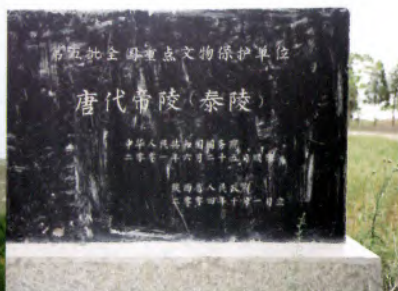 第五批全国重点文物保护单位
唐代帝陵（泰陵）
中华人民共和国国务院
二零零一年六月二十五日公布
陕西省人民政府
二零零四年十月一日立